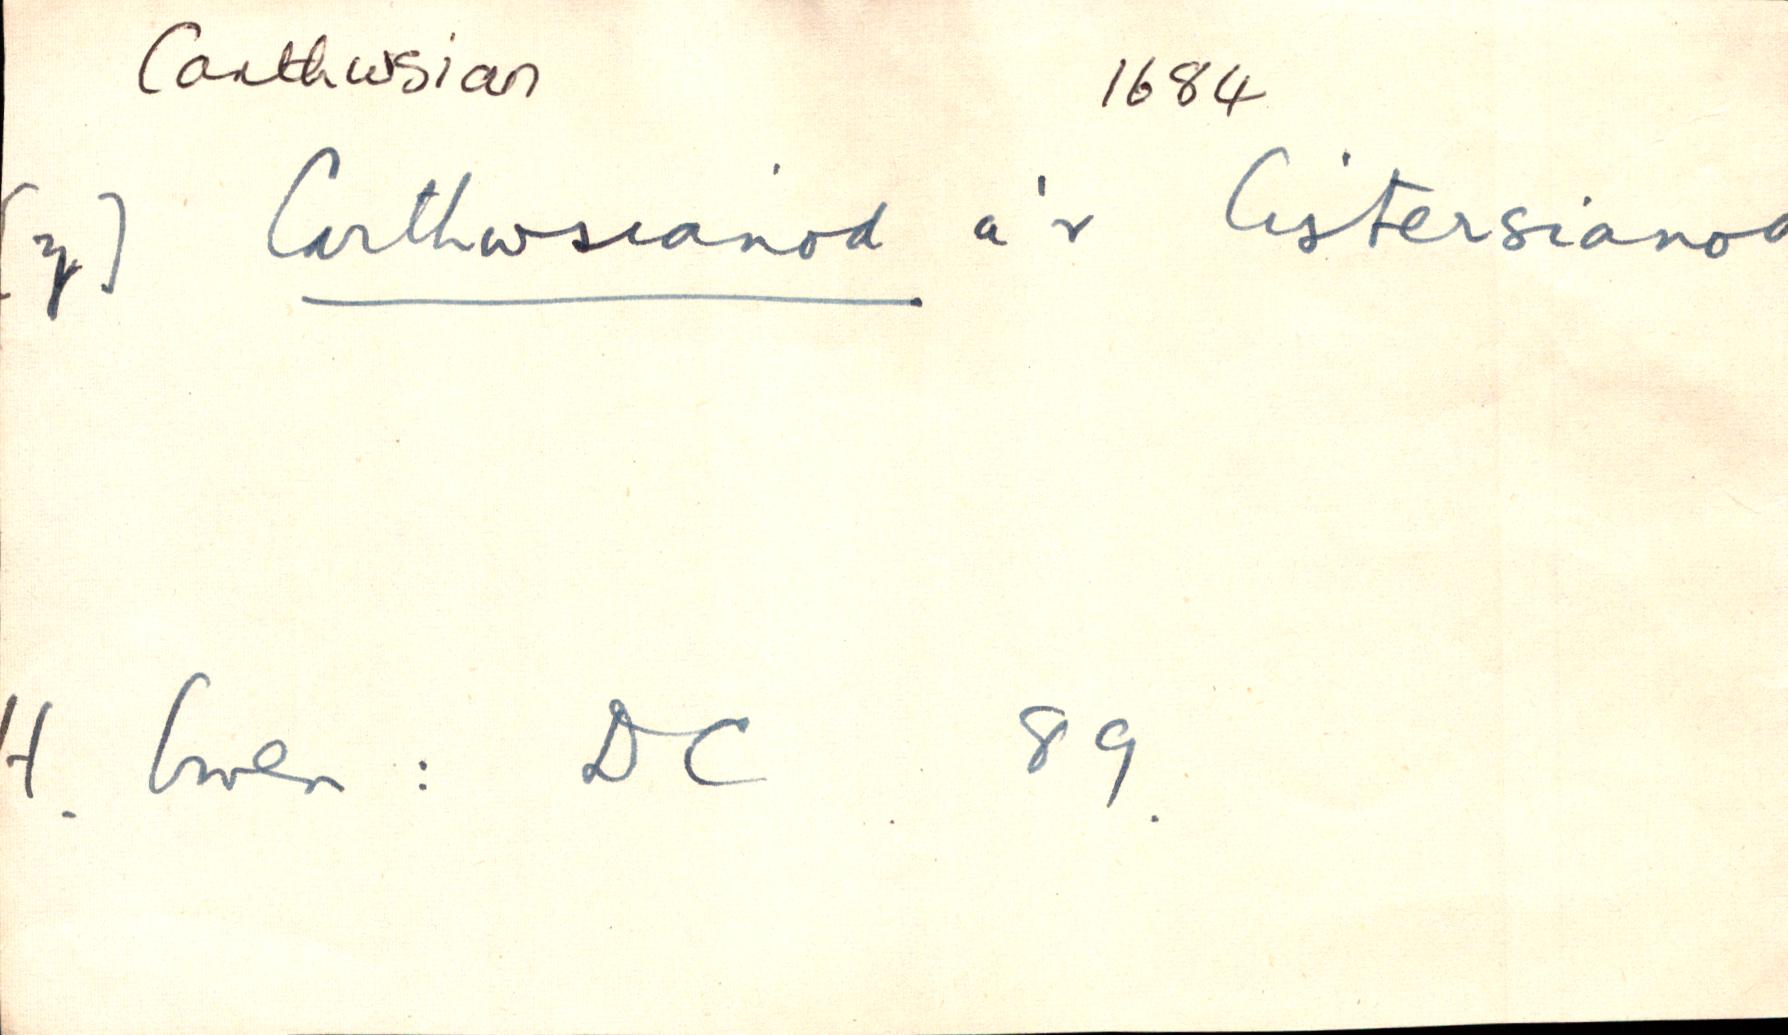 Carthwsian 1684
[y] Carthwsianod a'r Cistersianod
H. Owen: DC 89.